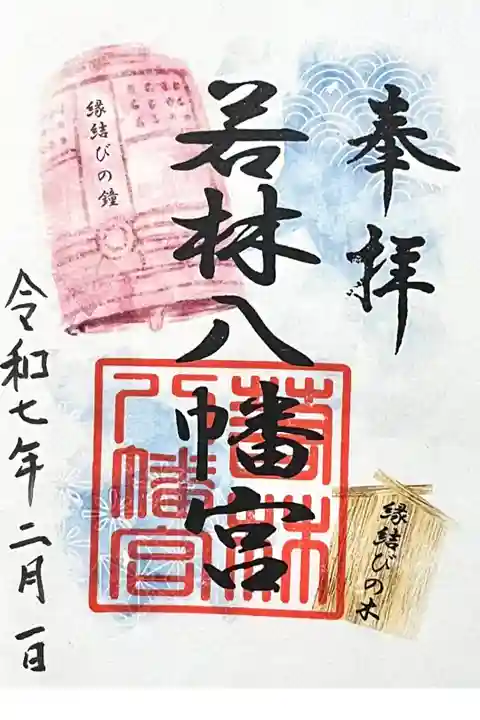 奉拝
若林八幡宮
縁結びの鐘
若林
八幡宮
縁結びの木
令和七年二月一日